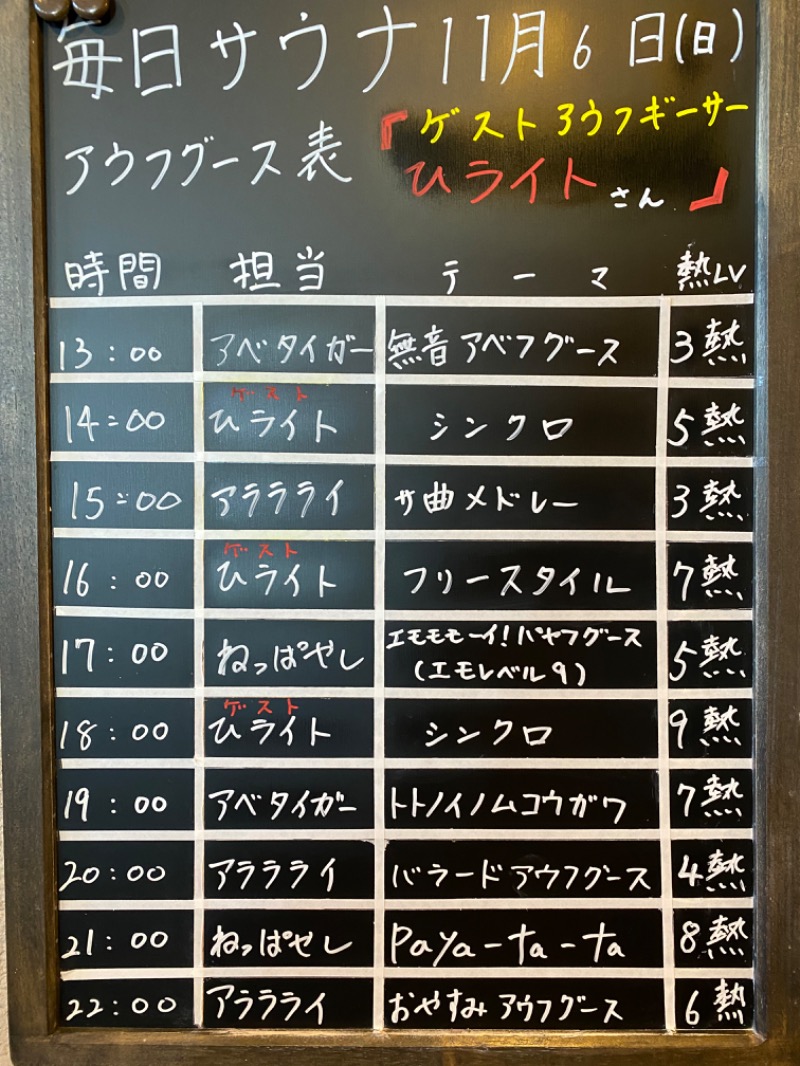 毎日サウナ 11月6日(日)
アウフグース表
『ゲストアウフギーサー
ひライトさん』
時間 担当 テーマ 熱LV
13:00 アベタイガー 無音アベフグース 3熱
ゲスト
14:00 ひライト シンクロ 5熱
15:00 アラララライ サ曲メドレー 3熱
ゲスト
16:00 ひライト フリースタイル 7熱
17:00 ねっぱやし エモモモーイ!パヤフグース 5熱
(エモレベル9)
ゲスト
18:00 ひライト シンクロ 9熱
19:00 アベタイガー トトノイノムコウガワ 7熱
20:00 アラララライ バラードアウフグース 4熱
21:00 ねっぱやし Paya-ta-ta 8熱
22:00 アラララライ おやすみアウフグース 6熱